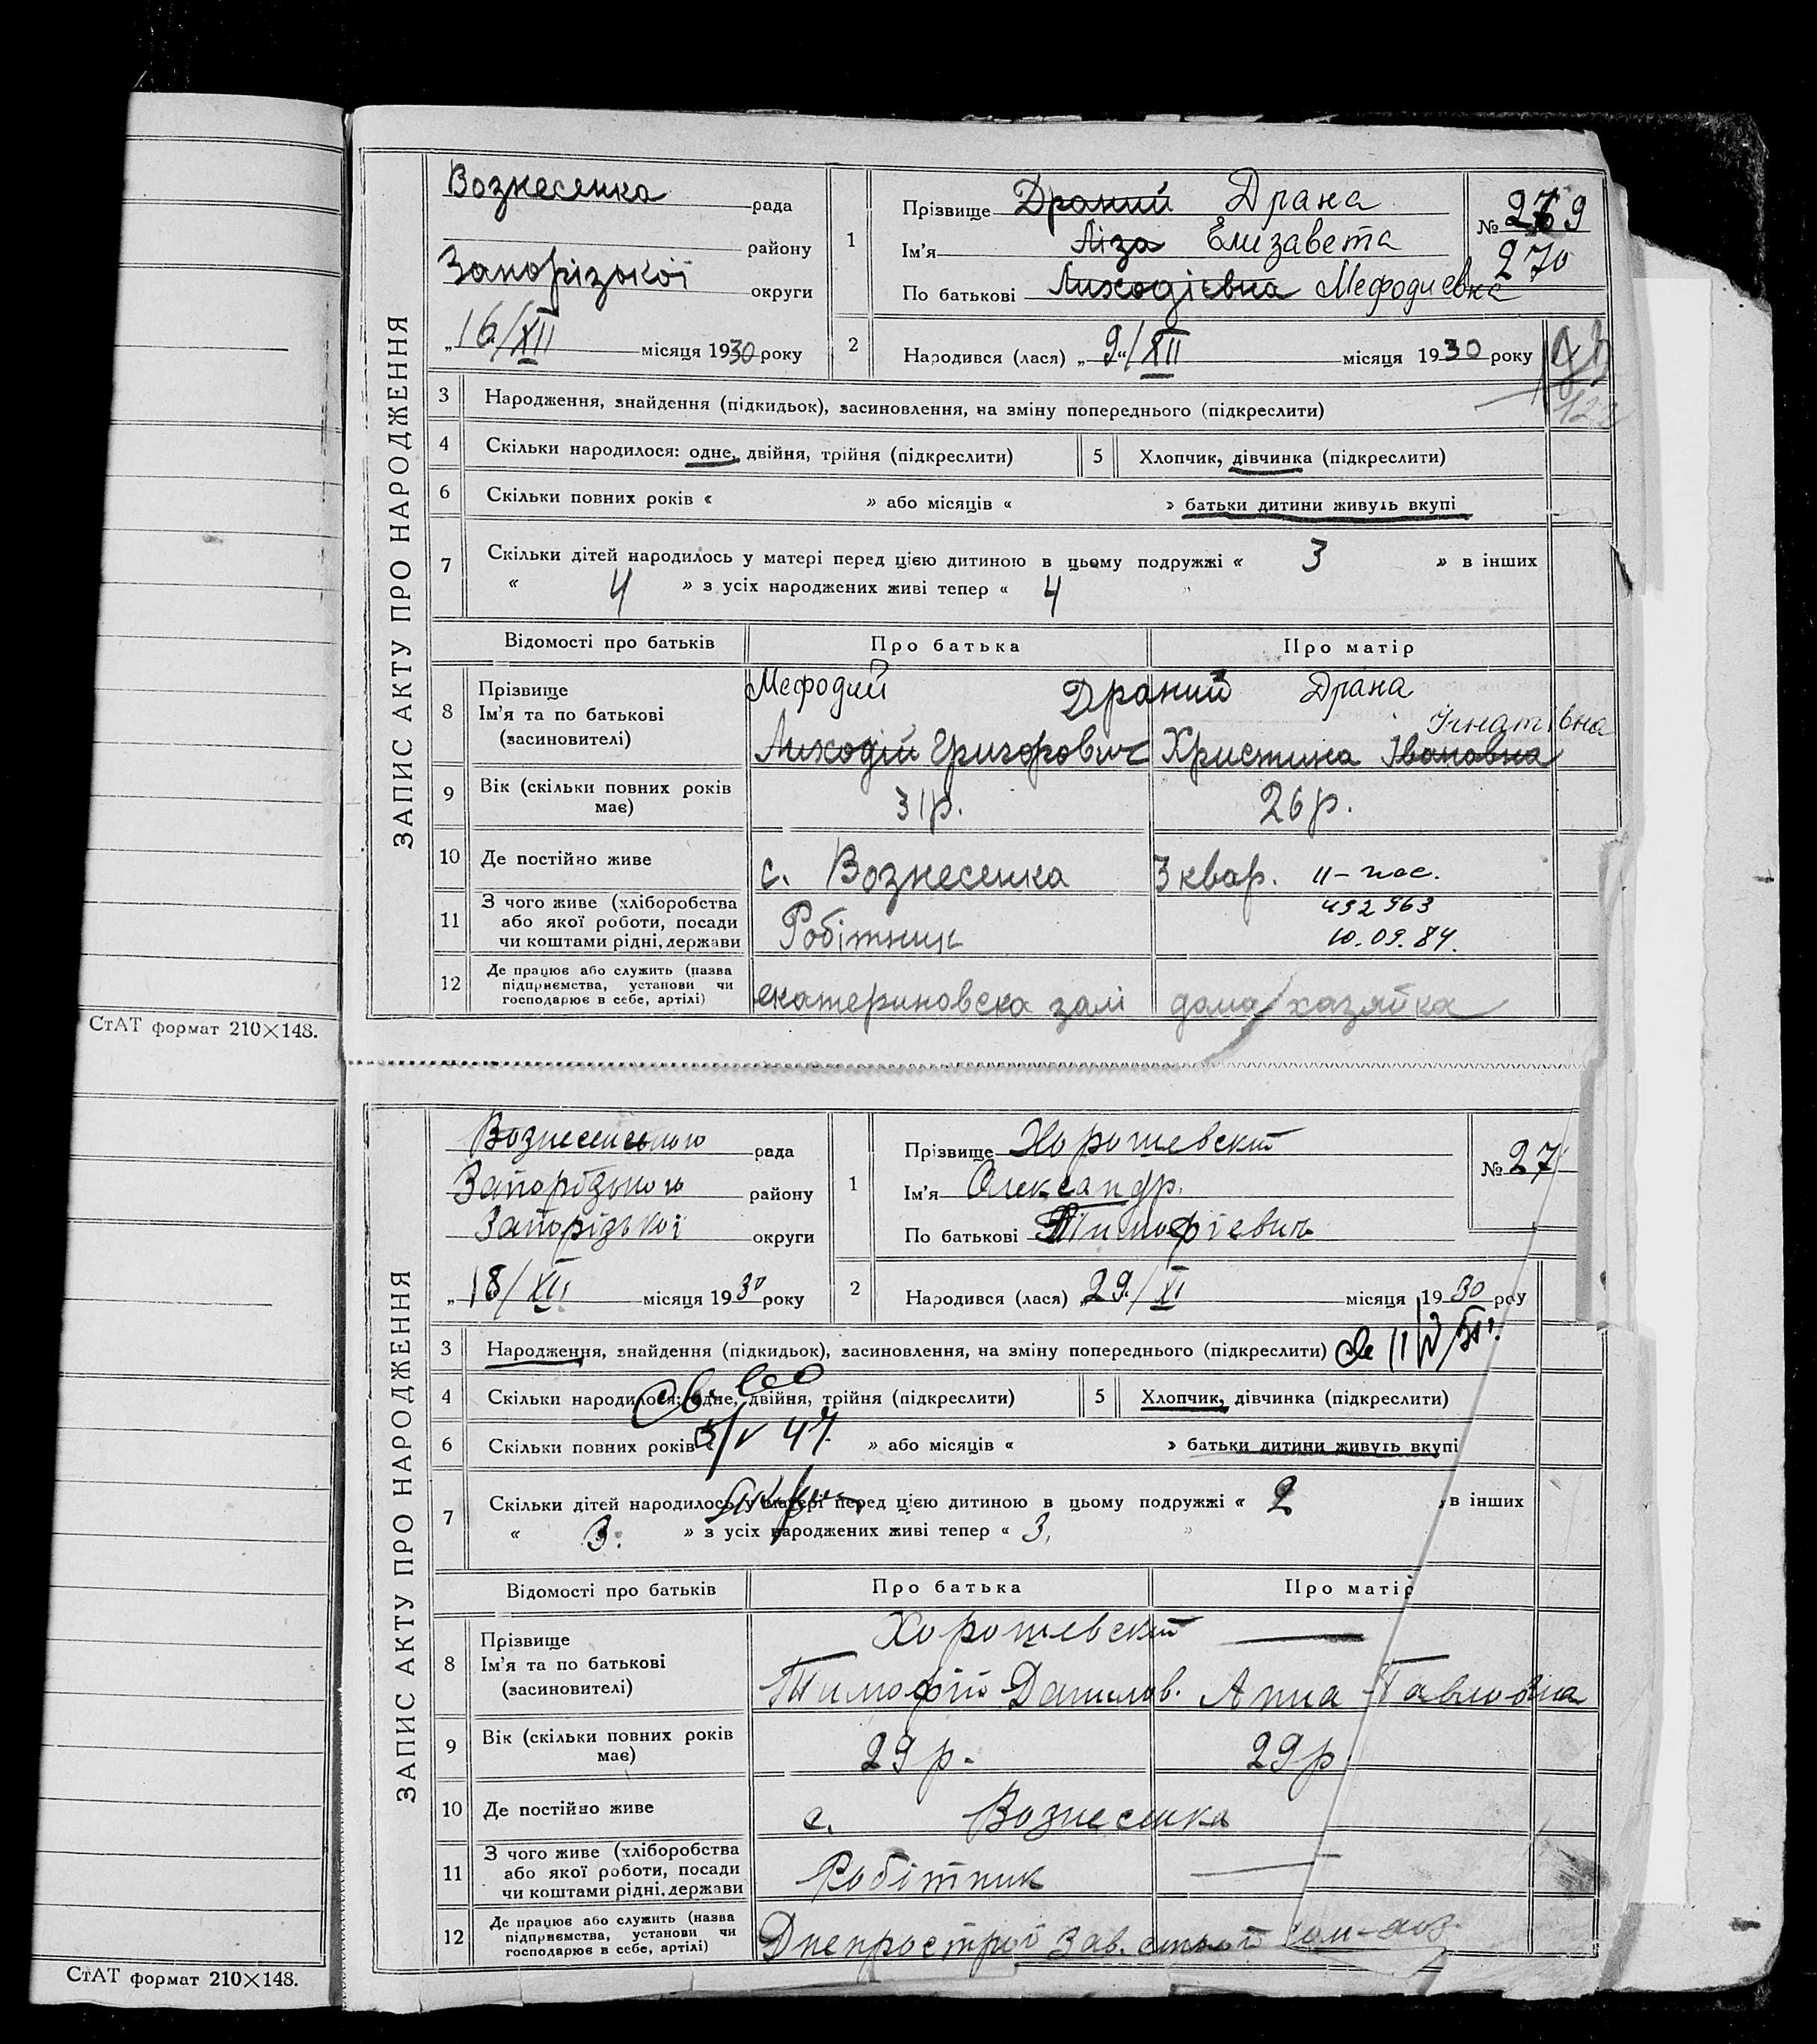 СтАТ формат 210×148.
СтАТ формат 210×148.
ЗАПИС АКТУ ПРО НАРОДЖЕННЯ
Вознесенка рада
району
Запорізької округи
„16/XII місяця 1930 року
1
Прізвище Драний Драна
Ім'я Ліза Елизавета
По батькові Лиходієвна Мефодиевна
№ 269
270
2 Народився (лася) „9"/XII місяця 1930 року
3 Народження, знайдення (підкидьок), засиновлення, на зміну попереднього (підкреслити)
4 Скільки народилося: одне, двійня, трійня (підкреслити) 5 Хлопчик, дівчинка (підкреслити)
6 Скільки повних років « » або місяців « » батьки дитини живуть вкупі
7 Скільки дітей народилось у матері перед цією дитиною в цьому подружжі « 3 » в інших
« 4 » з усіх народжених живі тепер « 4 "
Відомості про батьків Про батька Про матір
8 Прізвище
Ім'я та по батькові
(засиновителі)
Мефодий Драний Драна
Ігнатівна
Лиходій Григорович Христина Івановна
9 Вік (скільки повних років має) 31р. 26р.
10 Де постійно живе с. Вознесенка 3 квар. II-пос.
11 З чого живе (хліборобства
або якої роботи, посади
чи коштами рідні, держави
Робітник
492963
10.09.84.
12 Де працює або служить (назва
підприємства, установи чи
господарює в себе, артілі)
екатериновска залі дома/хазяйка
ЗАПИС АКТУ ПРО НАРОДЖЕННЯ
Вознесенського рада
Запорізького району
Запорізької округи
„18/XII місяця 1930 року
1
Прізвище Хорошевский
Ім'я Олександр.
По батькові Тимофієвич
№ 27
2 Народився (лася) „29./XI місяця 1930 року
3 Народження, знайдення (підкидьок), засиновлення, на зміну попереднього (підкреслити)
4 Скільки народилося: одне, двійня, трійня (підкреслити) 5 Хлопчик, дівчинка (підкреслити)
6 Скільки повних років « » або місяців « » батьки дитини живуть вкупі
7 Скільки дітей народилось у матері перед цією дитиною в цьому подружжі « 2 » в інших
« 3. » з усіх народжених живі тепер « 3. "
Відомості про батьків Про батька Про матір
8 Прізвище
Ім'я та по батькові
(засиновителі)
Хорошевский
Тимофій Данилов. Анна Павловна
9 Вік (скільки повних років має) 29р. 29р.
10 Де постійно живе с. Вознесенка
11 З чого живе (хліборобства
або якої роботи, посади
чи коштами рідні, держави
Робітник
12 Де працює або служить (назва
підприємства, установи чи
господарює в себе, артілі)
Днепрострой Зав.